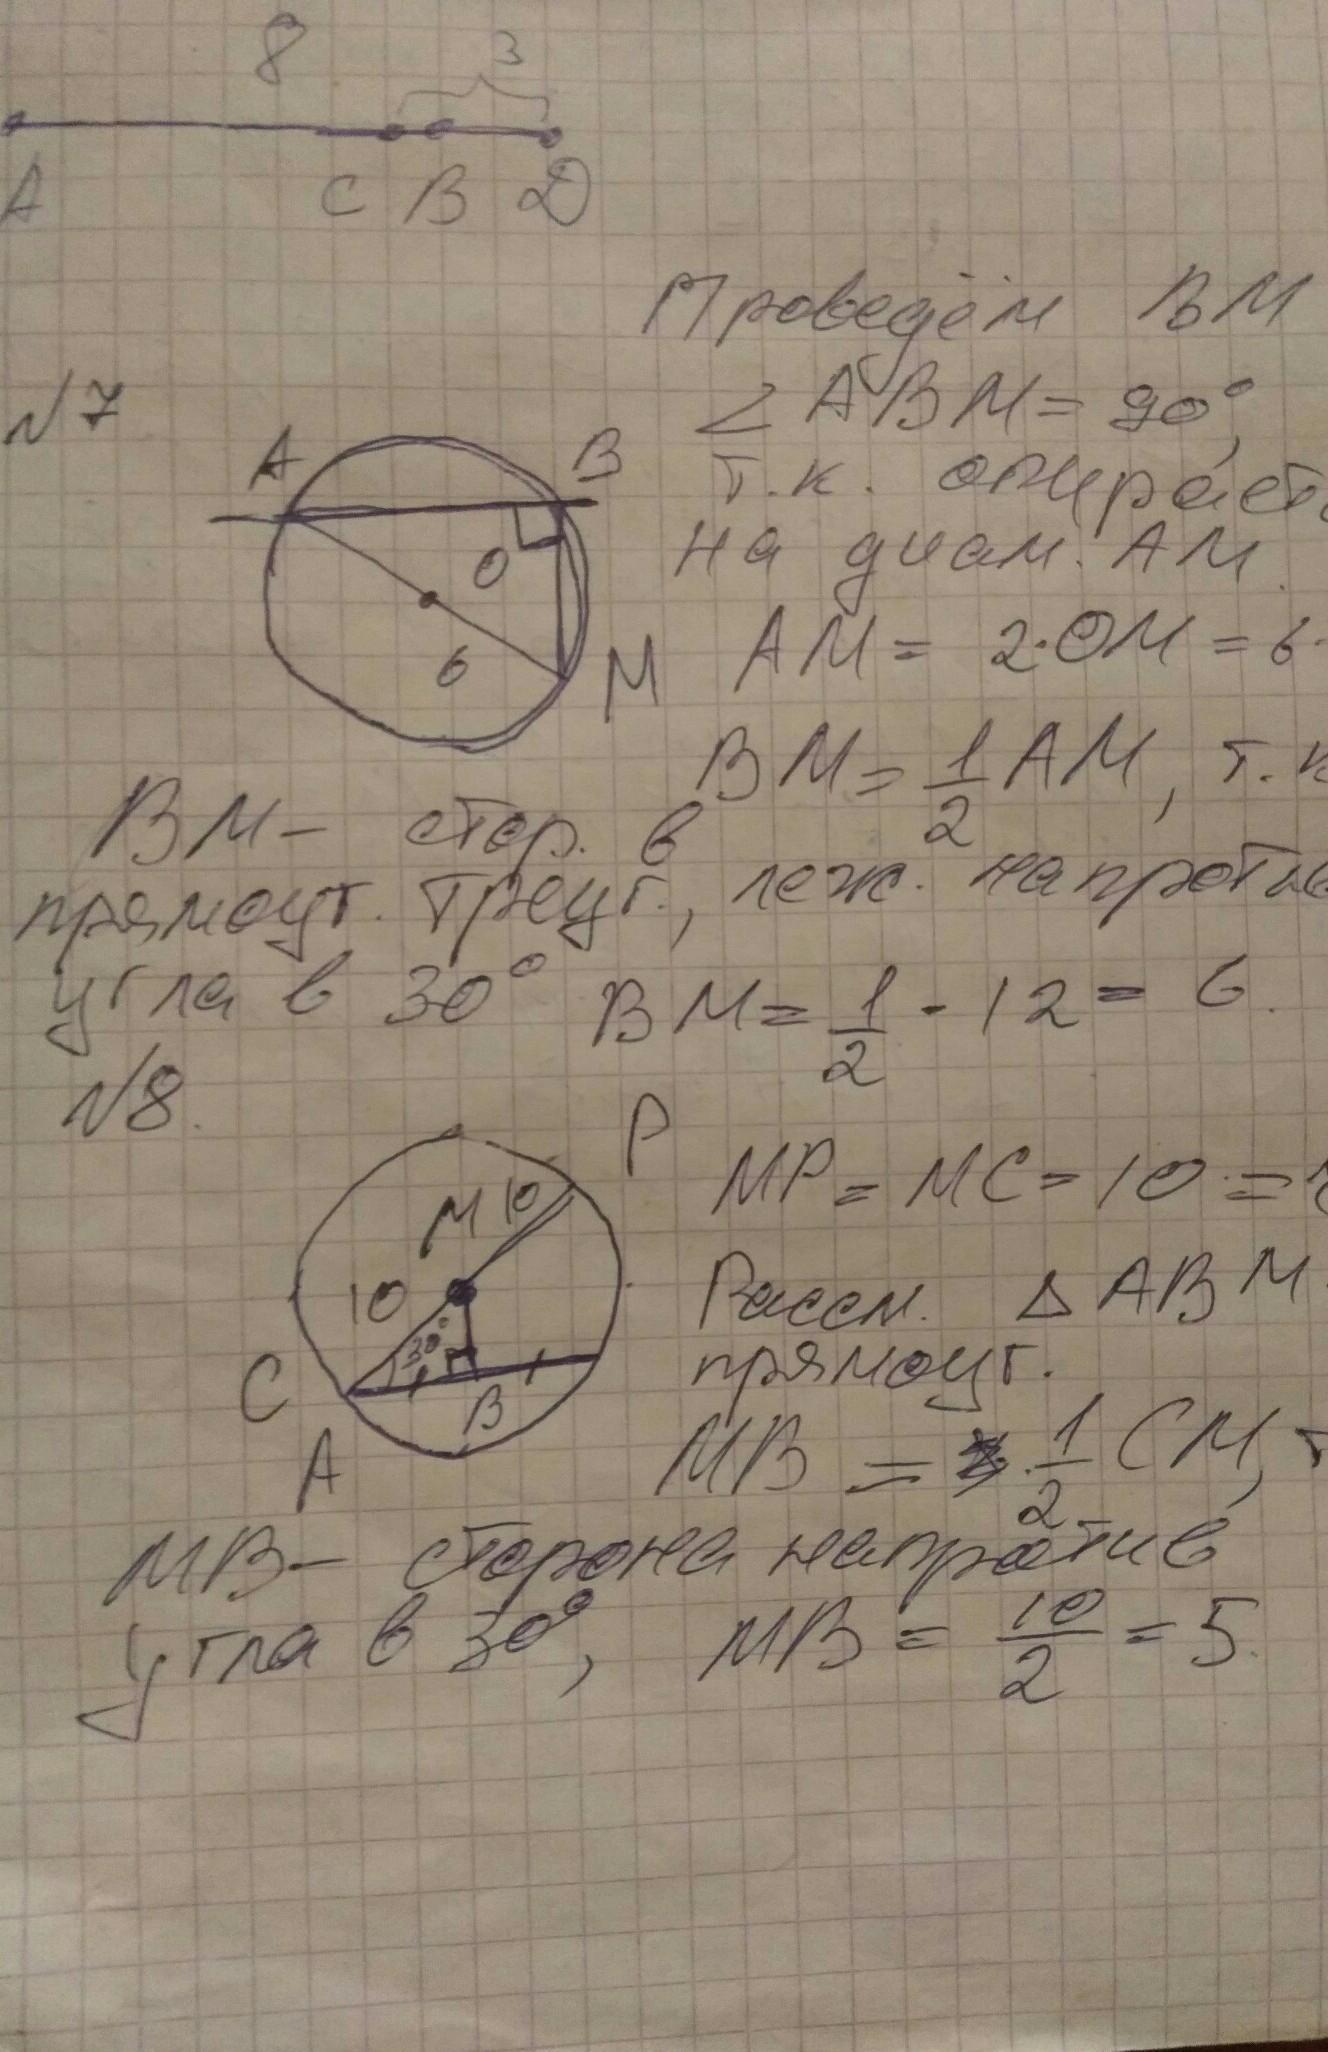 8 3
A C B D
Проведём BM
N7
∠ABM = 90°,
A B
т.к. опираетс
O
на диам. AM.
6 M
AM = 2·OM = 6·
BM = 1/2 AM, т.к
BM – стор. в
прямоуг. треуг., леж. напротив
угла в 30° BM = 1/2 · 12 = 6.
N8.
P
M 10
MP = MC = 10 =
10
Рассм. △ABM-
30°
C
прямоуг.
B
A
MB = 1/2 CM, т
MB – сторона напротив
угла в 30°, MB = 10/2 = 5.